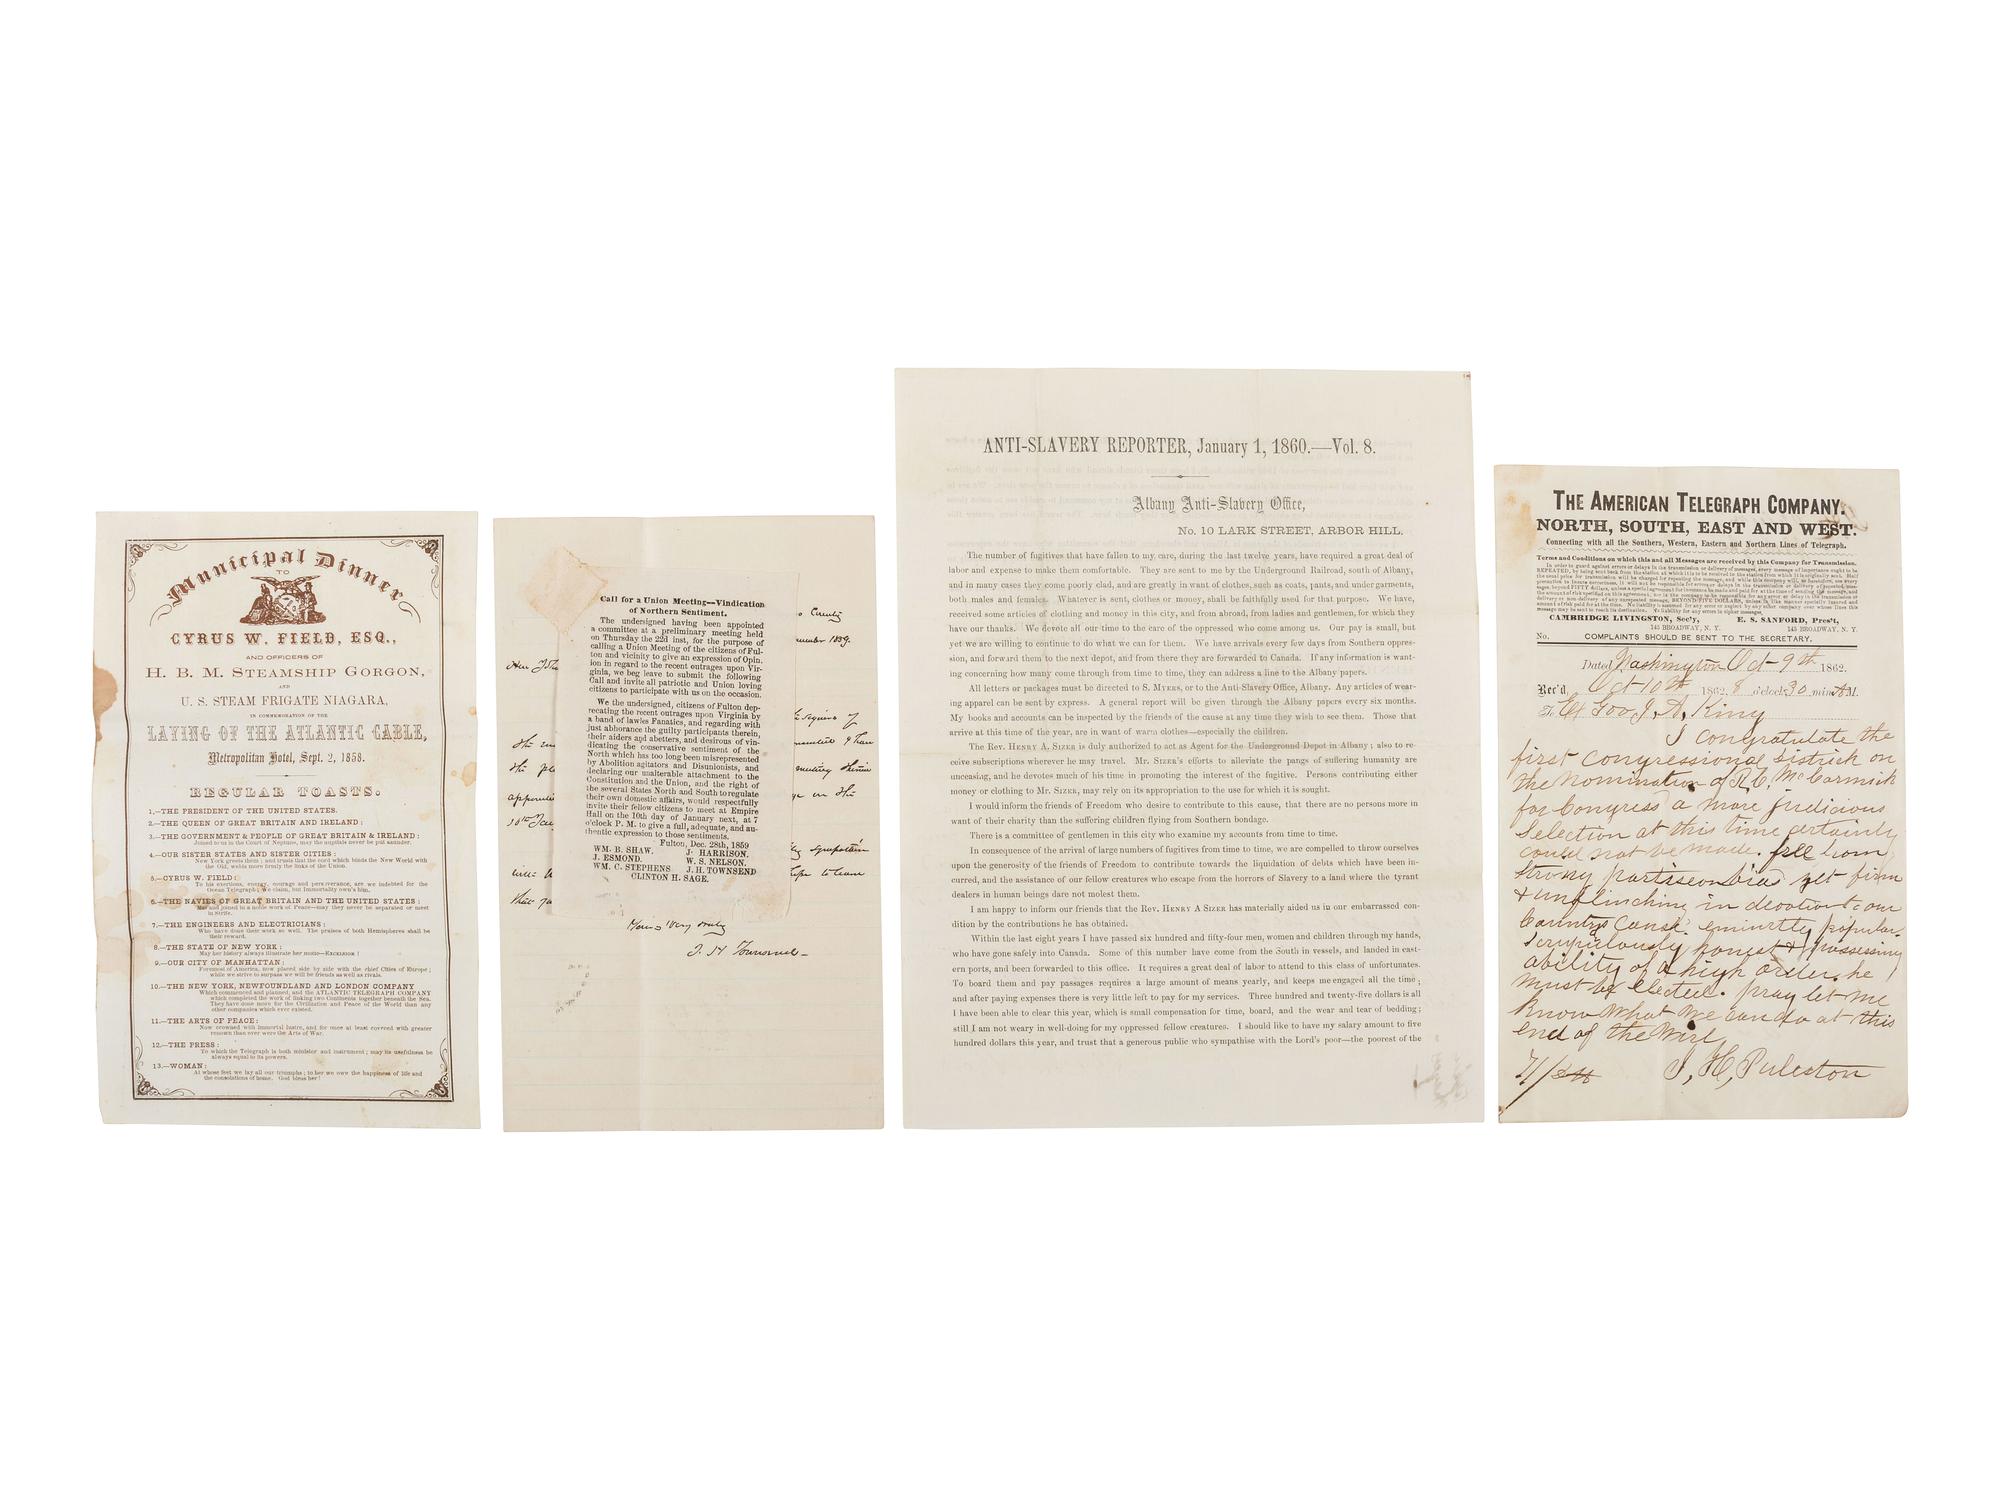 Municipal Dinner
TO
CYRUS W. FIELD, ESQ.,
AND OFFICERS OF
H. B. M. STEAMSHIP GORGON,
AND
U. S. STEAM FRIGATE NIAGARA,
IN COMMEMORATION OF THE
LAYING OF THE ATLANTIC CABLE,
Metropolitan Hotel, Sept. 2, 1858.
REGULAR TOASTS.
1,—THE PRESIDENT OF THE UNITED STATES.
2.—THE QUEEN OF GREAT BRITAIN AND IRELAND:
3.—THE GOVERNMENT & PEOPLE OF GREAT BRITAIN & IRELAND:
Joined to us in the Court of Neptune, may the nuptials never be put asunder.
4.—OUR SISTER STATES AND SISTER CITIES:
New York greets them; and trusts that the cord which binds the New World with
the Old, welds more firmly the links of the Union.
5.—CYRUS W. FIELD:
To his exertions, energy, courage and perseverance, are we indebted for the
Ocean Telegraph; We claim, but Immortality own's him.
6.—THE NAVIES OF GREAT BRITAIN AND THE UNITED STATES:
Met and joined in a noble work of Peace—may they never be separated or meet
in Strife.
7.—THE ENGINEERS AND ELECTRICIANS:
Who have done their work so well. The praises of both Hemispheres shall be
their reward.
8.—THE STATE OF NEW YORK:
May her history always illustrate her motto—EXCELSIOR!
9.—OUR CITY OF MANHATTAN:
Foremost of America, now placed side by side with the chief Cities of Europe;
while we strive to surpass we will be friends as well as rivals.
10.—THE NEW YORK, NEWFOUNDLAND AND LONDON COMPANY
Which commenced and planned, and the ATLANTIC TELEGRAPH COMPANY
which completed the work of linking two Continents together beneath the Sea.
They have done more for the Civilization and Peace of the World than any
other companies which ever existed.
11.—THE ARTS OF PEACE:
Now crowned with immortal lustre, and for once at least covered with greater
renown than ever were the Arts of War.
12.—THE PRESS:
To which the Telegraph is both minister and instrument; may its usefulness be
always equal to its powers.
13.—WOMAN:
At whose feet we lay all our triumphs; to her we owe the happiness of life and
the consolations of home. God bless her!
County
1859.
Call for a Union Meeting—Vindication
of Northern Sentiment.
The undersigned having been appointed
a committee at a preliminary meeting held
on Thursday the 22d inst, for the purpose of
calling a Union Meeting of the citizens of Ful-
ton and vicinity to give an expression of Opin-
ion in regard to the recent outrages upon Vir-
ginia, we beg leave to submit the following
Call and invite all patriotic and Union loving
citizens to participate with us on the occasion.
We the undersigned, citizens of Fulton dep-
recating the recent outrages upon Virginia by
a band of lawles Fanatics, and regarding with
just abhorance the guilty participants therein,
their aiders and abetters, and desirous of vin-
dicating the conservative sentiment of the
North which has too long been misrepresented
by Abolition agitators and Disunionists, and
declaring our unalterable attachment to the
Constitution and the Union, and the right of
the several States North and South to regulate
their own domestic affairs, would respectfully
invite their fellow citizens to meet at Empire
Hall on the 10th day of January next, at 7
o'clock P. M. to give a full, adequate, and au-
thentic expression to those sentiments.
Fulton, Dec. 28th, 1859
WM. B. SHAW. J. HARRISON.
J. ESMOND. W. S. NELSON.
WM. C. STEPHENS. J. H. TOWNSEND
CLINTON H. SAGE.
Yours Very truly
J. H Townsend
ANTI-SLAVERY REPORTER, January 1, 1860.—Vol. 8.
Albany Anti-Slavery Office,
No. 10 LARK STREET, ARBOR HILL.
The number of fugitives that have fallen to my care, during the last twelve years, have required a great deal of
labor and expense to make them comfortable. They are sent to me by the Underground Railroad, south of Albany,
and in many cases they come poorly clad, and are greatly in want of clothes, such as coats, pants, and undergarments,
both males and females. Whatever is sent, clothes or money, shall be faithfully used for that purpose. We have,
received some articles of clothing and money in this city, and from abroad, from ladies and gentlemen, for which they
have our thanks. We devote all our time to the care of the oppressed who come among us. Our pay is small, but
yet we are willing to continue to do what we can for them. We have arrivals every few days from Southern oppres-
sion, and forward them to the next depot, and from there they are forwarded to Canada. If any information is want-
ing concerning how many come through from time to time, they can address a line to the Albany papers.
All letters or packages must be directed to S. MYERS, or to the Anti-Slavery Office, Albany. Any articles of wear-
ing apparel can be sent by express. A general report will be given through the Albany papers every six months.
My books and accounts can be inspected by the friends of the cause at any time they wish to see them. Those that
arrive at this time of the year, are in want of warm clothes—especially the children.
The Rev. HENRY A. SIZER is duly authorized to act as Agent for the Underground Depot in Albany; also to re-
ceive subscriptions wherever he may travel. Mr. SIZER'S efforts to alleviate the pangs of suffering humanity are
unceasing, and he devotes much of his time in promoting the interest of the fugitive. Persons contributing either
money or clothing to Mr. SIZER, may rely on its appropriation to the use for which it is sought.
I would inform the friends of Freedom who desire to contribute to this cause, that there are no persons more in
want of their charity than the suffering children flying from Southern bondage.
There is a committee of gentlemen in this city who examine my accounts from time to time.
In consequence of the arrival of large numbers of fugitives from time to time, we are compelled to throw ourselves
upon the generosity of the friends of Freedom to contribute towards the liquidation of debts which have been in-
curred, and the assistance of our fellow creatures who escape from the horrors of Slavery to a land where the tyrant
dealers in human beings dare not molest them.
I am happy to inform our friends that the Rev. HENRY A SIZER has materially aided us in our embarrassed con-
dition by the contributions he has obtained.
Within the last eight years I have passed six hundred and fifty-four men, women and children through my hands,
who have gone safely into Canada. Some of this number have come from the South in vessels, and landed in east-
ern ports, and been forwarded to this office. It requires a great deal of labor to attend to this class of unfortunates.
To board them and pay passages requires a large amount of means yearly, and keeps me engaged all the time;
and after paying expenses there is very little left to pay for my services. Three hundred and twenty-five dollars is all
I have been able to clear this year, which is small compensation for time, board, and the wear and tear of bedding;
still I am not weary in well-doing for my oppressed fellow creatures. I should like to have my salary amount to five
hundred dollars this year, and trust that a generous public who sympathise with the Lord's poor—the poorest of the
THE AMERICAN TELEGRAPH COMPANY.
NORTH, SOUTH, EAST AND WEST.
Connecting with all the Southern, Western, Eastern and Northern Lines of Telegraph.
Terms and Conditions on which this and all Messages are received by this Company for Transmission.
CAMBRIDGE LIVINGSTON, Sec'y, E. S. SANFORD, Pres't,
145 BROADWAY, N. Y. 145 BROADWAY, N. Y.
No. COMPLAINTS SHOULD BE SENT TO THE SECRETARY.
Dated Washington Oct 9th 1862.
Rec'd, Oct 10th 1862, 8 o'clock, 30 min. AM.
To Ex Gov J. A. King
I congratulate the
first congressional district on
the nomination of R. C. McCormick
for Congress a more judicious
selection at this time certainly
could not be made. free from
strong partisan bias yet firm
& unflinching in devotion to our
Countrys cause. eminetly popular
scrupulously honest & possessing
ability of a high order. he
must be elected. pray let me
know what we can do at this
end of the wire
71/ J, H, Puleston